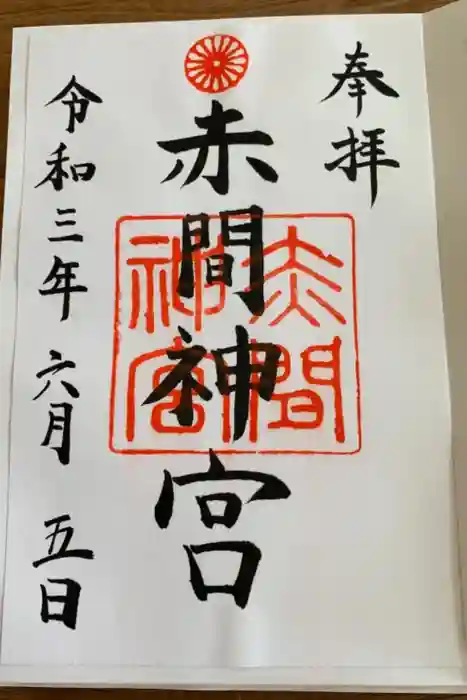 奉拝
赤間神宮
赤間神宮
令和三年六月五日